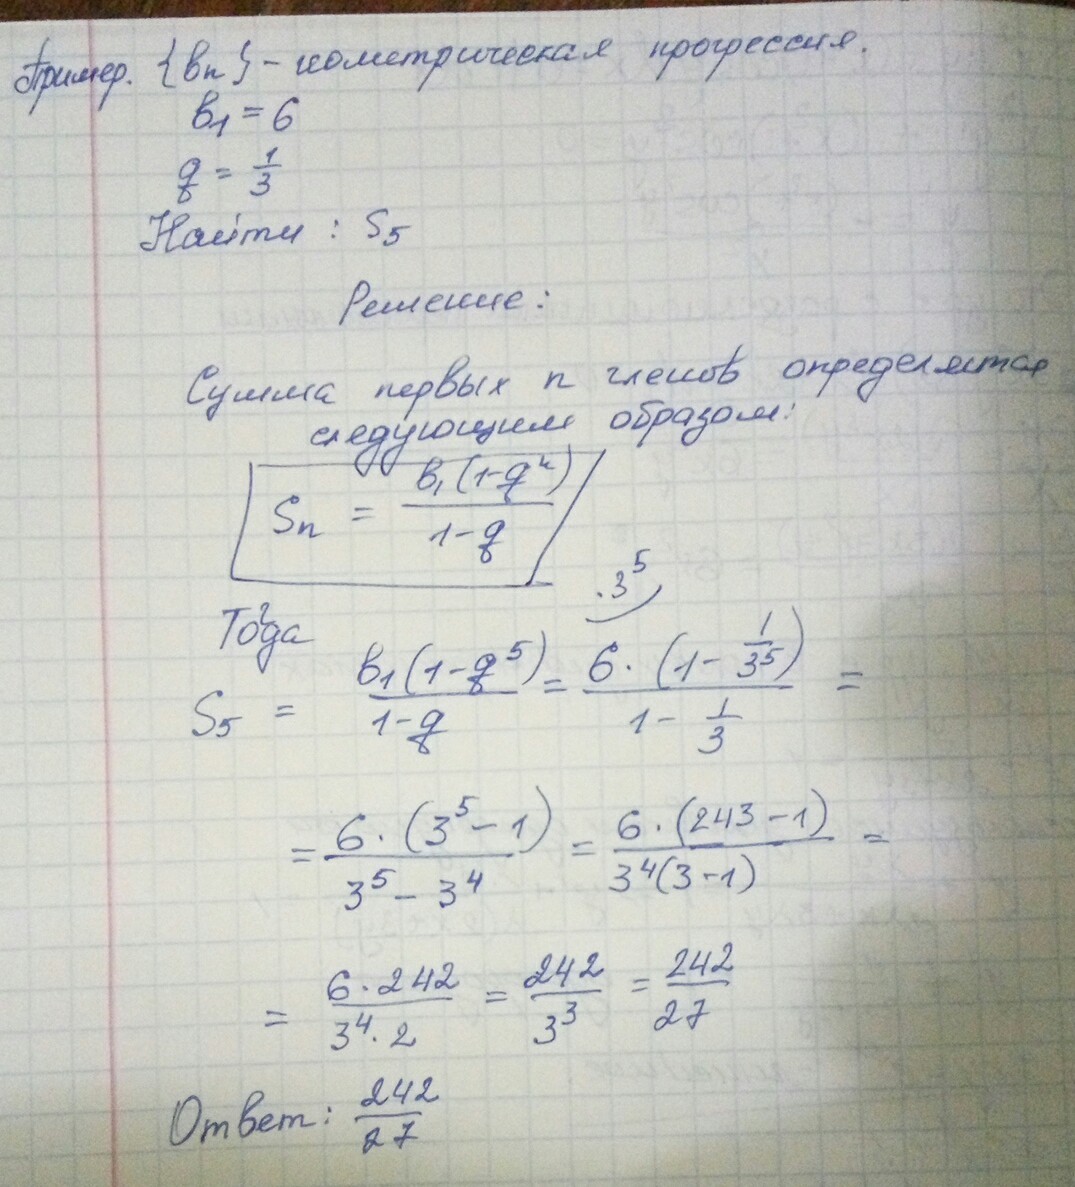 Пример. {bn} – геометрическая прогрессия.
b₁ = 6
q = 1/3
Найти : S₅
Решение:
Сумма первых n членов определяется
следующим образом:
Sn = b₁(1-qⁿ)/(1-q)
·3⁵
Тогда
S₅ = b₁(1-q⁵)/(1-q) = 6·(1 - 1/3⁵)/(1 - 1/3) =
= 6·(3⁵-1)/(3⁵-3⁴) = 6·(243-1)/(3⁴(3-1)) =
= 6·242/(3⁴·2) = 242/3³ = 242/27
Ответ: 242/27